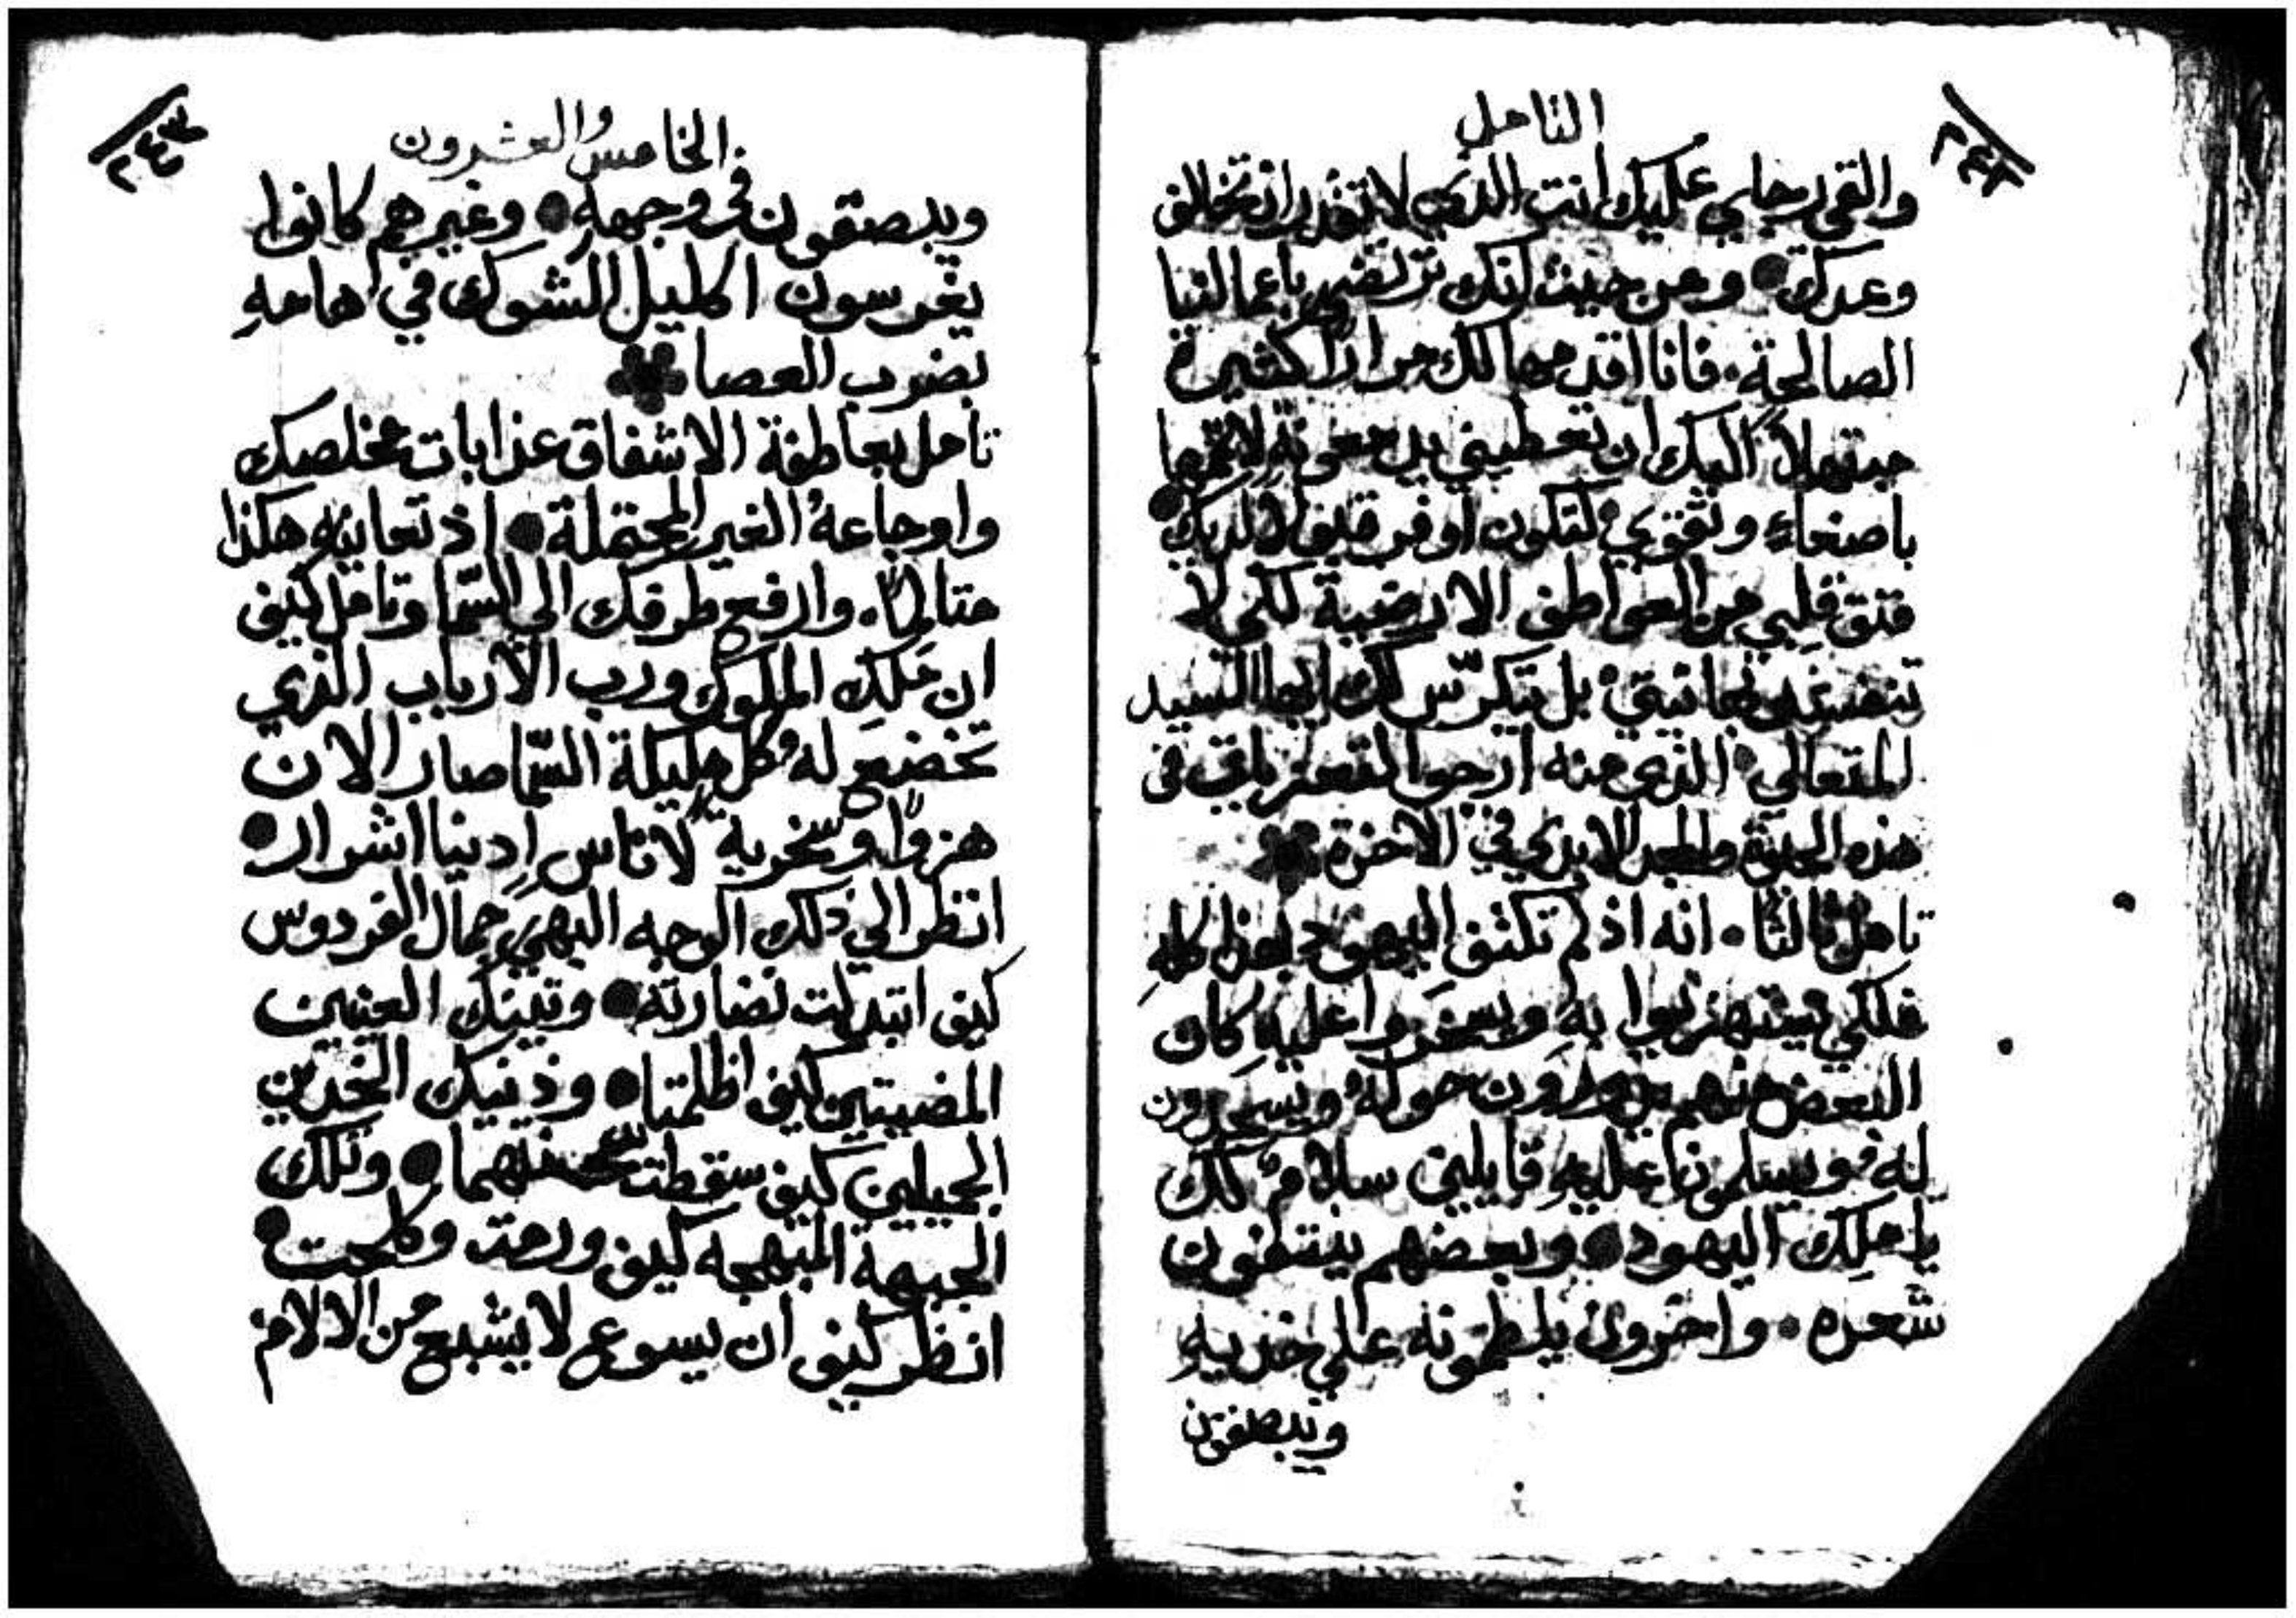 التامل
٢٤٢
والقي رجاي عليك انت الذي لا تقدر ان تخالف
وعدك • ومن حيث انك ترتضي باعمالنا
الصالحة. فانا اقدمها لك مرارًا كثيرة
مبتهلاً اليك ان تعطيني يد معونة لاتممها
باصغاء وتقوي لتكون اوفر قبولاً لديك •
فتق قلبي من العواطف الارضية لكي لا
بل تكرّس لك ايها السيد
المتعالي الذي منه ارجوا التعزيات في
هذه الحيوة والمجد الابدي في الاخرة
تامل ثالثا. انه اذ لم تكتف اليهود بهذا كله
فلكي يستهزيوا به ويسخروا عليه كان
البعض منهم يدورون حوله ويسجدون
له ويسلمون عليه قايلين سلام لك
يا ملك اليهود • وبعضهم ينتفون
شعره. واخرون يلطمونه على خديه
ويبصقون
الخامس والعشرون
٢٤٣
ويبصقون في وجهه • وغيرهم كانوا
يغرسون اكليل الشوك في هامه
بضرب العصا
تامل بعاطفة الاشفاق عذابات مخلصك
واوجاعه الغير المحتملة • اذ تعاينه هكذا
متالمًا. وارفع طرفك الى السّما وتامل كيف
ان ملك الملوك ورب الارباب الذي
تخضع له كل مليكة السّما صار الان
هزوًا وسخرية لاناس ادنيا اشرار •
انظر الي ذلك الوجه البهي جمال الفردوس
كيف ابتدلت نضارته • وتينك العينين
المضيتين كيف اظلمتا • وذينك الخدين
الجميلين كيف سقطت منهما • وتلك
الجبهة المبهجه كيف ورمت وكلحت •
انظر كيف ان يسوع لا يشبع من الالام